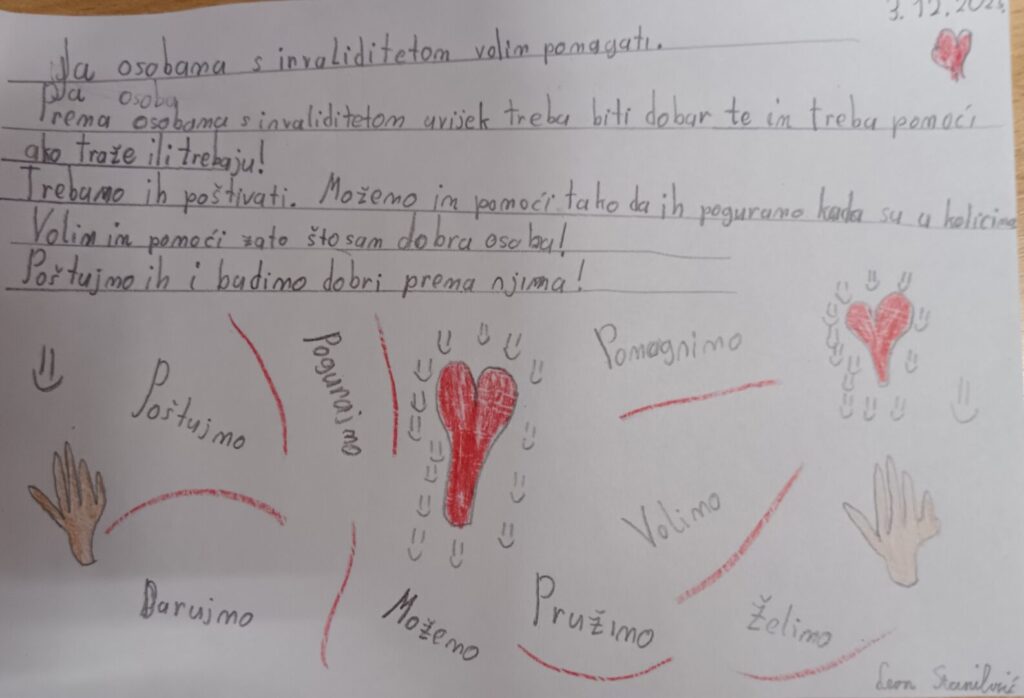 3.12.202
Ja osobama s invaliditetom volim pomagati.
Ja osoba
Prema osobama s invaliditetom uvijek treba biti dobar te im treba pomoći
ako traže ili trebaju!
Trebamo ih poštivati. Možemo im pomoći tako da ih poguramo kada su u kolicima
Volim im pomoći zato što sam dobra osoba!
Poštujmo ih i budimo dobri prema njima!
Poštujmo
Pogurajmo
Pomognimo
Volimo
Darujmo
Možemo
Pružimo
Želimo
Leon